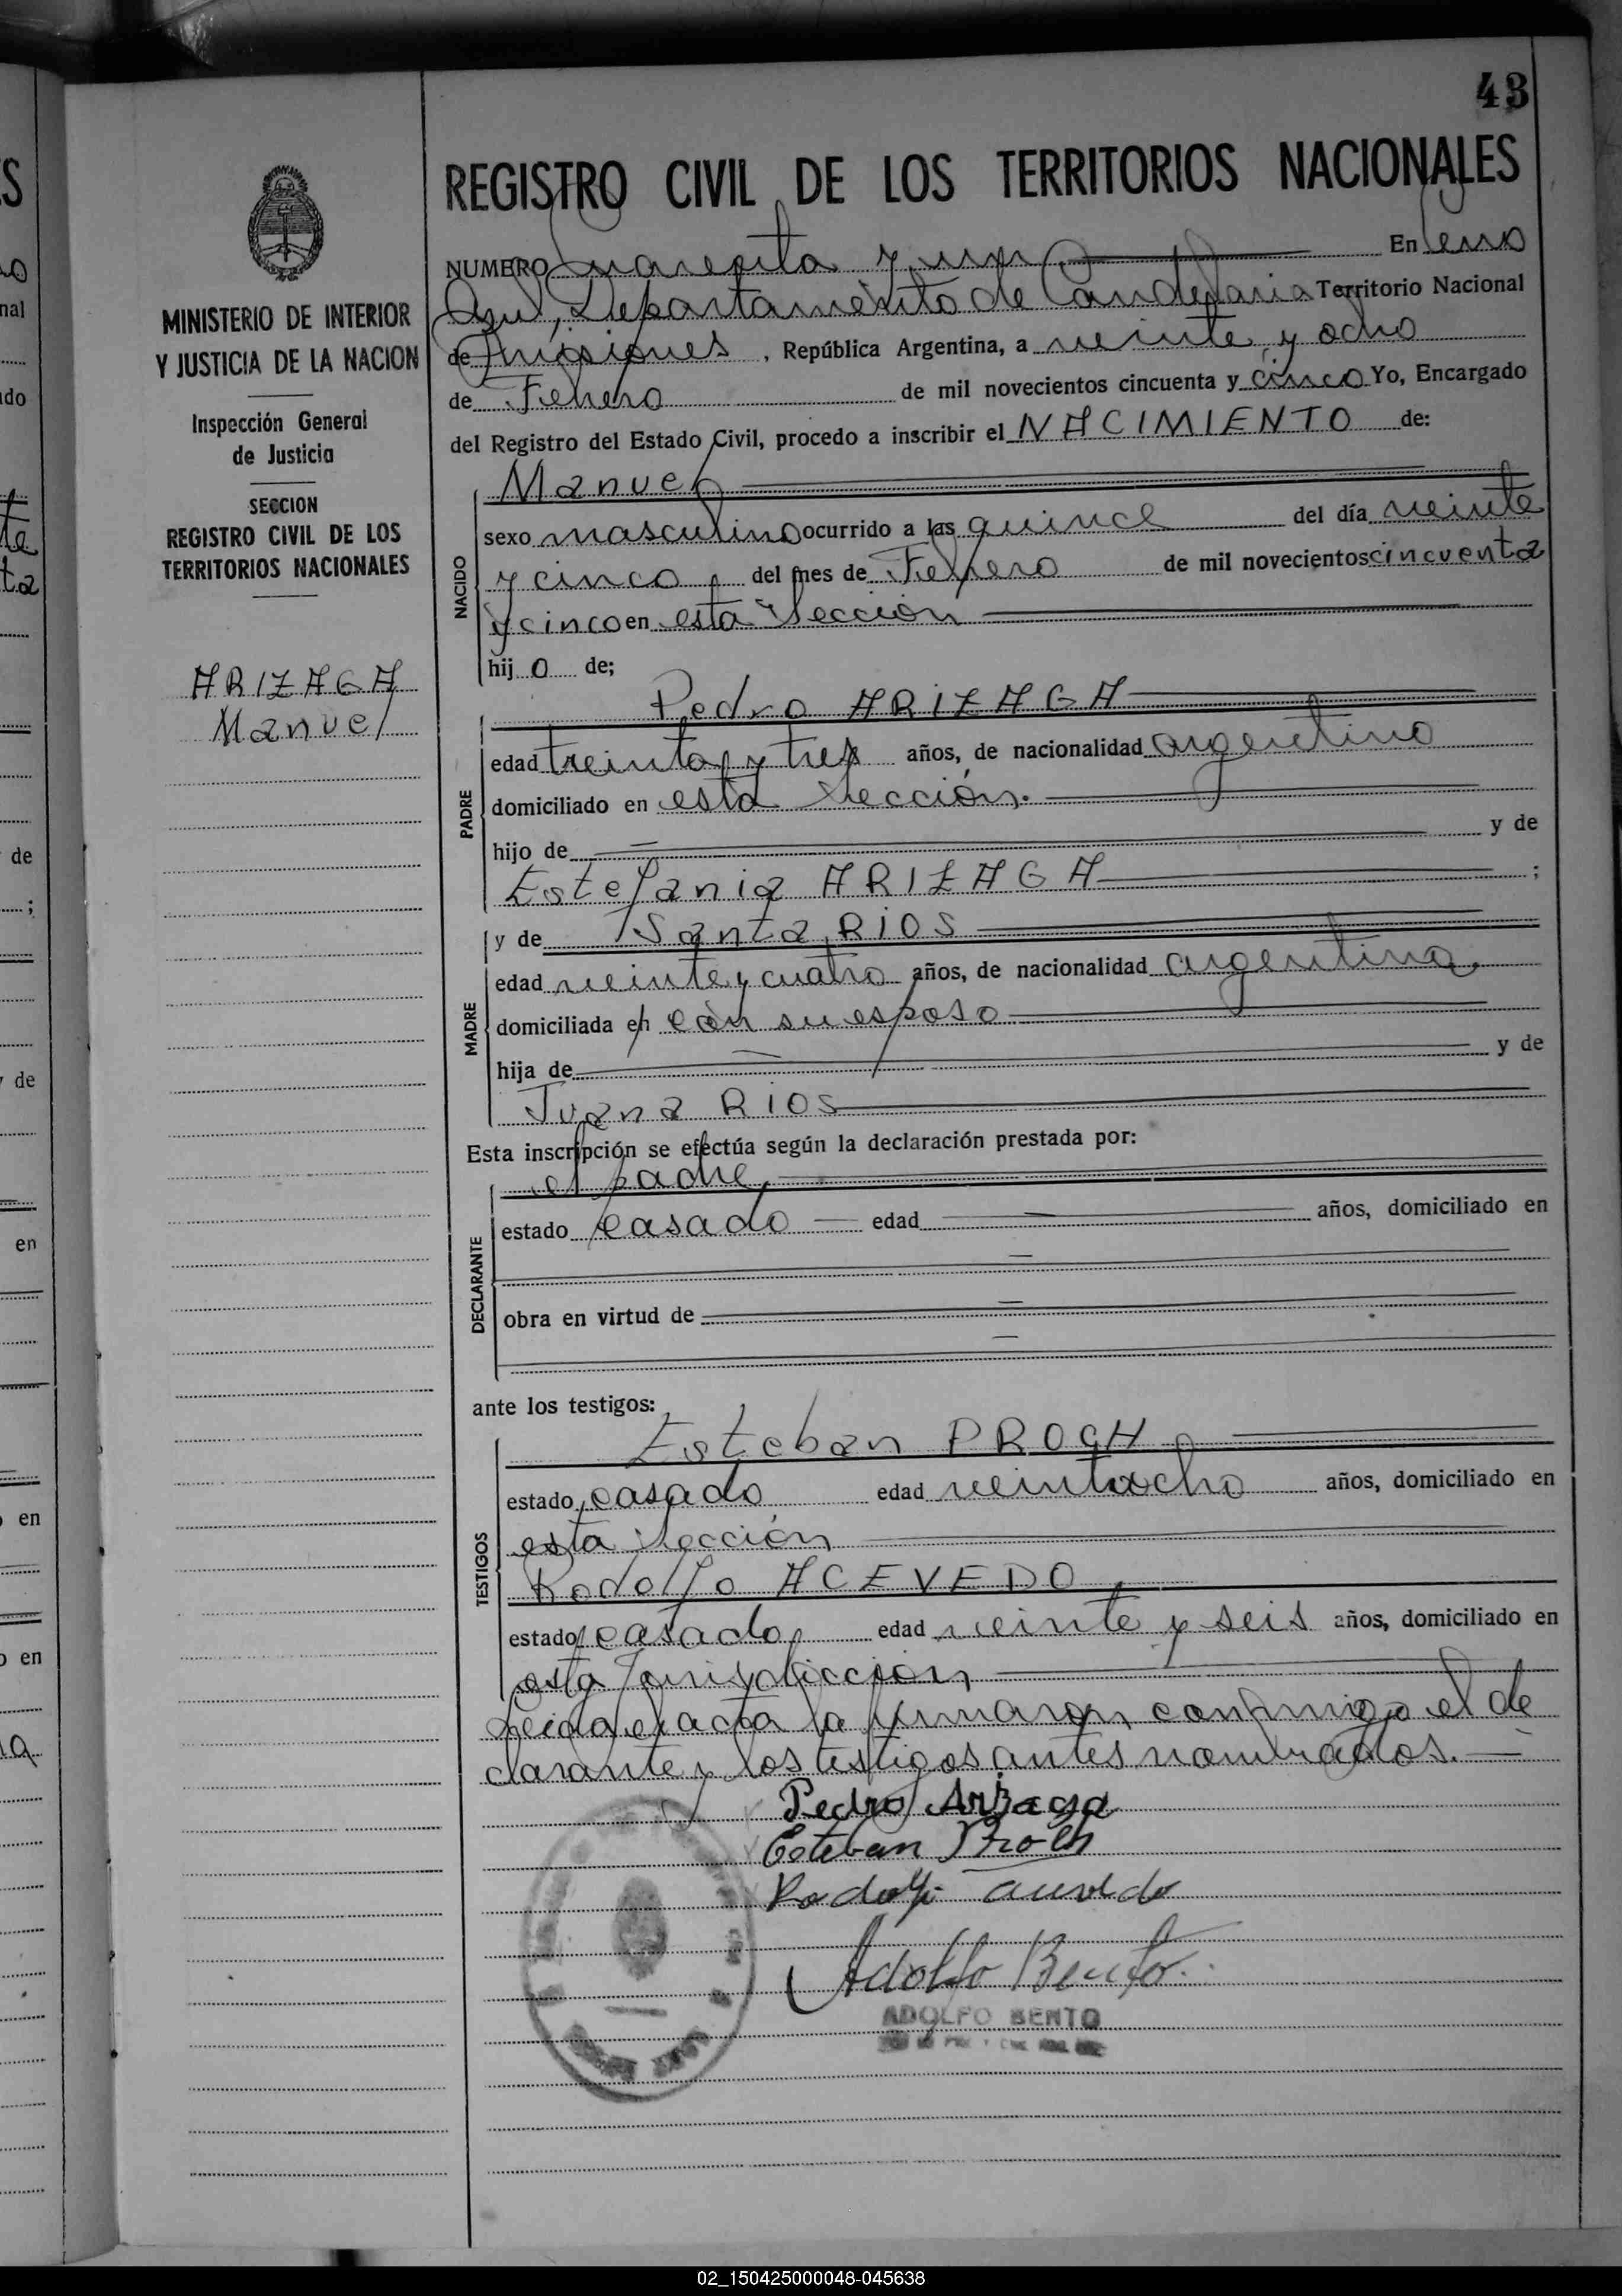 43
REGISTRO CIVIL DE LOS TERRITORIOS NACIONALES
MINISTERIO DE INTERIOR
Y JUSTICIA DE LA NACION
Inspección General
de Justicia
SECCION
REGISTRO CIVIL DE LOS
TERRITORIOS NACIONALES
ARIZAGA
Manuel
NUMERO Cuarenta y un En Cerro
Azul, Departamento de Candelaria Territorio Nacional
de Misiones, República Argentina, a veinte y ocho
de Febrero de mil novecientos cincuenta y cinco Yo, Encargado
del Registro del Estado Civil, procedo a inscribir el NACIMIENTO de:
NACIDO
Manuel
sexo masculino ocurrido a las quince del día veinte
y cinco del mes de Febrero de mil novecientos cincuenta
y cinco en esta Sección
hijo de;
PADRE
Pedro ARIZAGA
edad treinta y tres años, de nacionalidad argentino
domiciliado en esta Sección.
hijo de y de
Estefania ARIZAGA ;
MADRE
y de Santa RIOS
edad veinte y cuatro años, de nacionalidad argentina
domiciliada en con su esposo
hija de y de
Juana RIOS
Esta inscripción se efectúa según la declaración prestada por:
DECLARANTE
el padre,
estado casado edad años, domiciliado en
obra en virtud de
ante los testigos:
TESTIGOS
Esteban PROCH
estado casado edad veintiocho años, domiciliado en
esta Sección
Rodolfo ACEVEDO,
estado casado edad veinte y seis años, domiciliado en
esta Jurisdicción
Leida el acta la firmaron conmigo el de
clarante y los testigos antes nombrados.
Pedro Arizaga
Esteban Proch
Rodolfo Acevedo
Adolfo Bento
ADOLFO BENTO
02_150425000048-045638